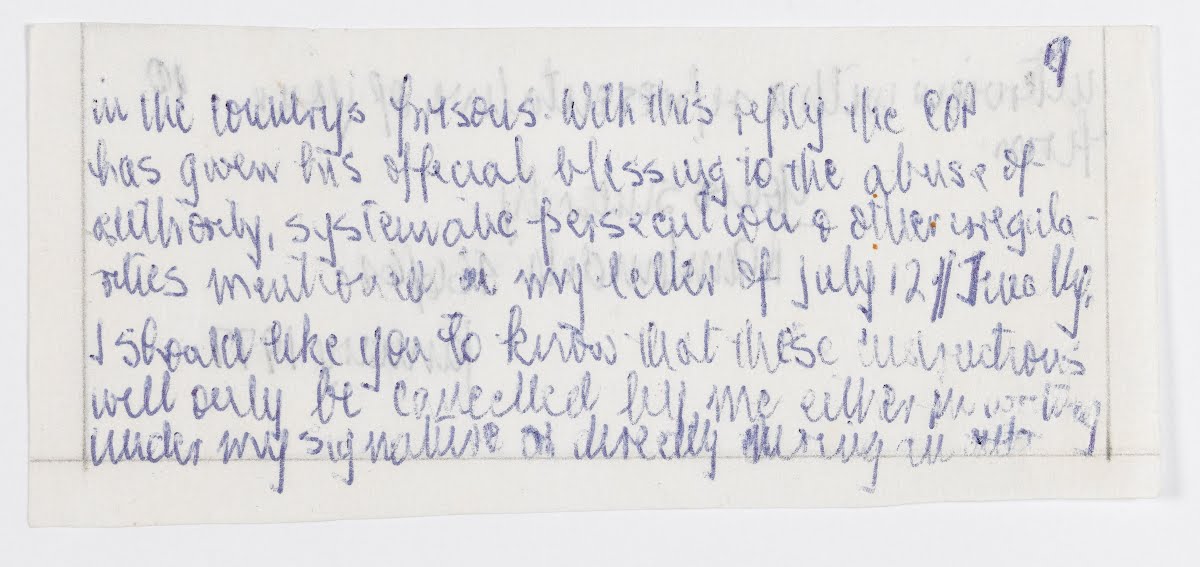 9
in the country's prisons. With this reply the COP
has given his official blessing to the abuse of
authority, systematic persecution & other irregula-
rities mentioned in my letter of July 12 // Finally,
I should like you to know that these instructions
will only be cancelled by me either in writing
under my signature or directly during an